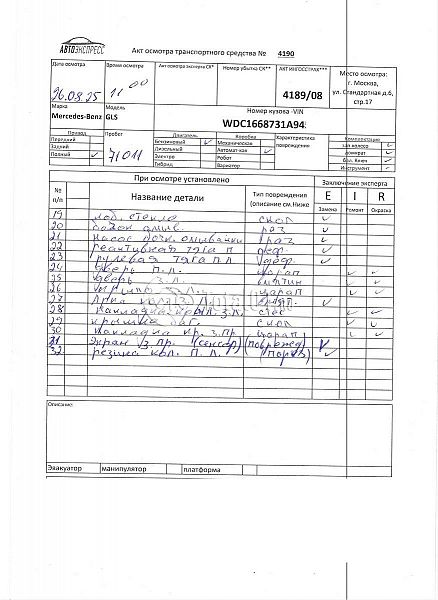 АВТОЭКСПРЕСС
Акт осмотра транспортного средства № 4190
Дата осмотра
26.08.25
Время осмотра
11 00
Акт осмотра эксперта СК*
Номер убытка СК**
АКТ ИНГОССТРАХ***
4189/08
Место осмотра:
г. Москва,
ул. Стандартная д.6,
стр.17
Марка
Mercedes-Benz
Модель
GLS
Номер кузова -VIN
WDC1668731A94
Привод
Передний
Задний
Полный ✓
Пробег
71011
Двигатель
Бензиновый ✓
Дизельный
Электро
Гибрид
Коробка
Механическая
Автоматная ✓
Робот
Вариатор
Характеристика
повреждения
Комплектация
зап.колесо ✓
домкрат ✓
Бал. Ключ ✓
Инструмент ✓
При осмотре установлено
Заключение эксперта
№ п/п
Название детали
Тип повреждения
(описание см.Ниже
E
I
R
Замена
Ремонт
Окраска
19 лоб. стекло скол ✓
20 бачок омыв. раз ✓
21 насос бачк. омывайки раз ✓
22 реактивная тяга п деф. ✓
23 рулевая тяга п л деф. ✓
24 дверь п.п. царап ✓ ✓
25 дверь з.л. ✓ ✓
26 З.Л. царап ✓ ✓
27 Арка З.Л. ✓
28 накладка кр. з.л. ✓ ✓
29 крышка баг. скол ✓ ✓
30 накладка кр. з.пр царап ✓ ✓
31 экран з.пр. (сенсор) (поврежд) ✓
32 резина кол. П.Л. (порез) ✓
Описание:
Эвакуатор
манипулятор
платформа